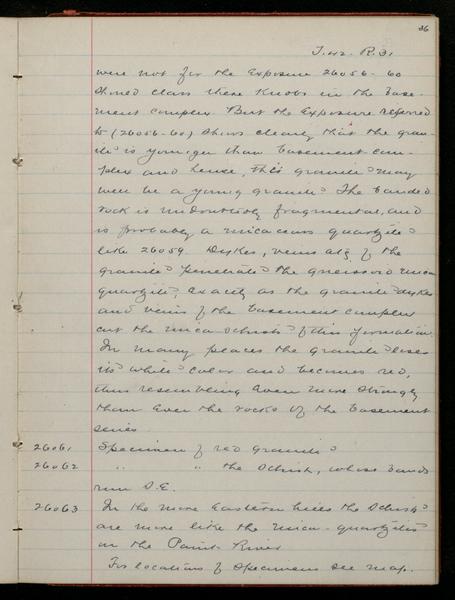 36
T. 42. R. 31
were not for the Exposure 26056-60
should class these Knobs in the base-
ment complex. But the Exposure referred
to (26056-60) shows clearly that the gran-
ite is younger than basement com-
plex and hence, this granite may
well be a young granite. The banded
rock is undoubtedly fragmental, and
is probably a micaceous quartzite
like 26059. Dykes, veins etc of the
granite penetrate the gneissoid mica
quartzite, exactly as the granite dykes
and veins of the basement complex
cut the mica schists of this formation.
In many places the granite loses
its white color and becomes red,
thus resembling even more strongly
than ever the rocks of the basement
series
26061 Specimen of red granite
26062 " " the schist, whose bands
run S.E.
26063 In the more Eastern hills the schists
are more like the mica-quartzites
on the Paint River
For locations of specimens see map.